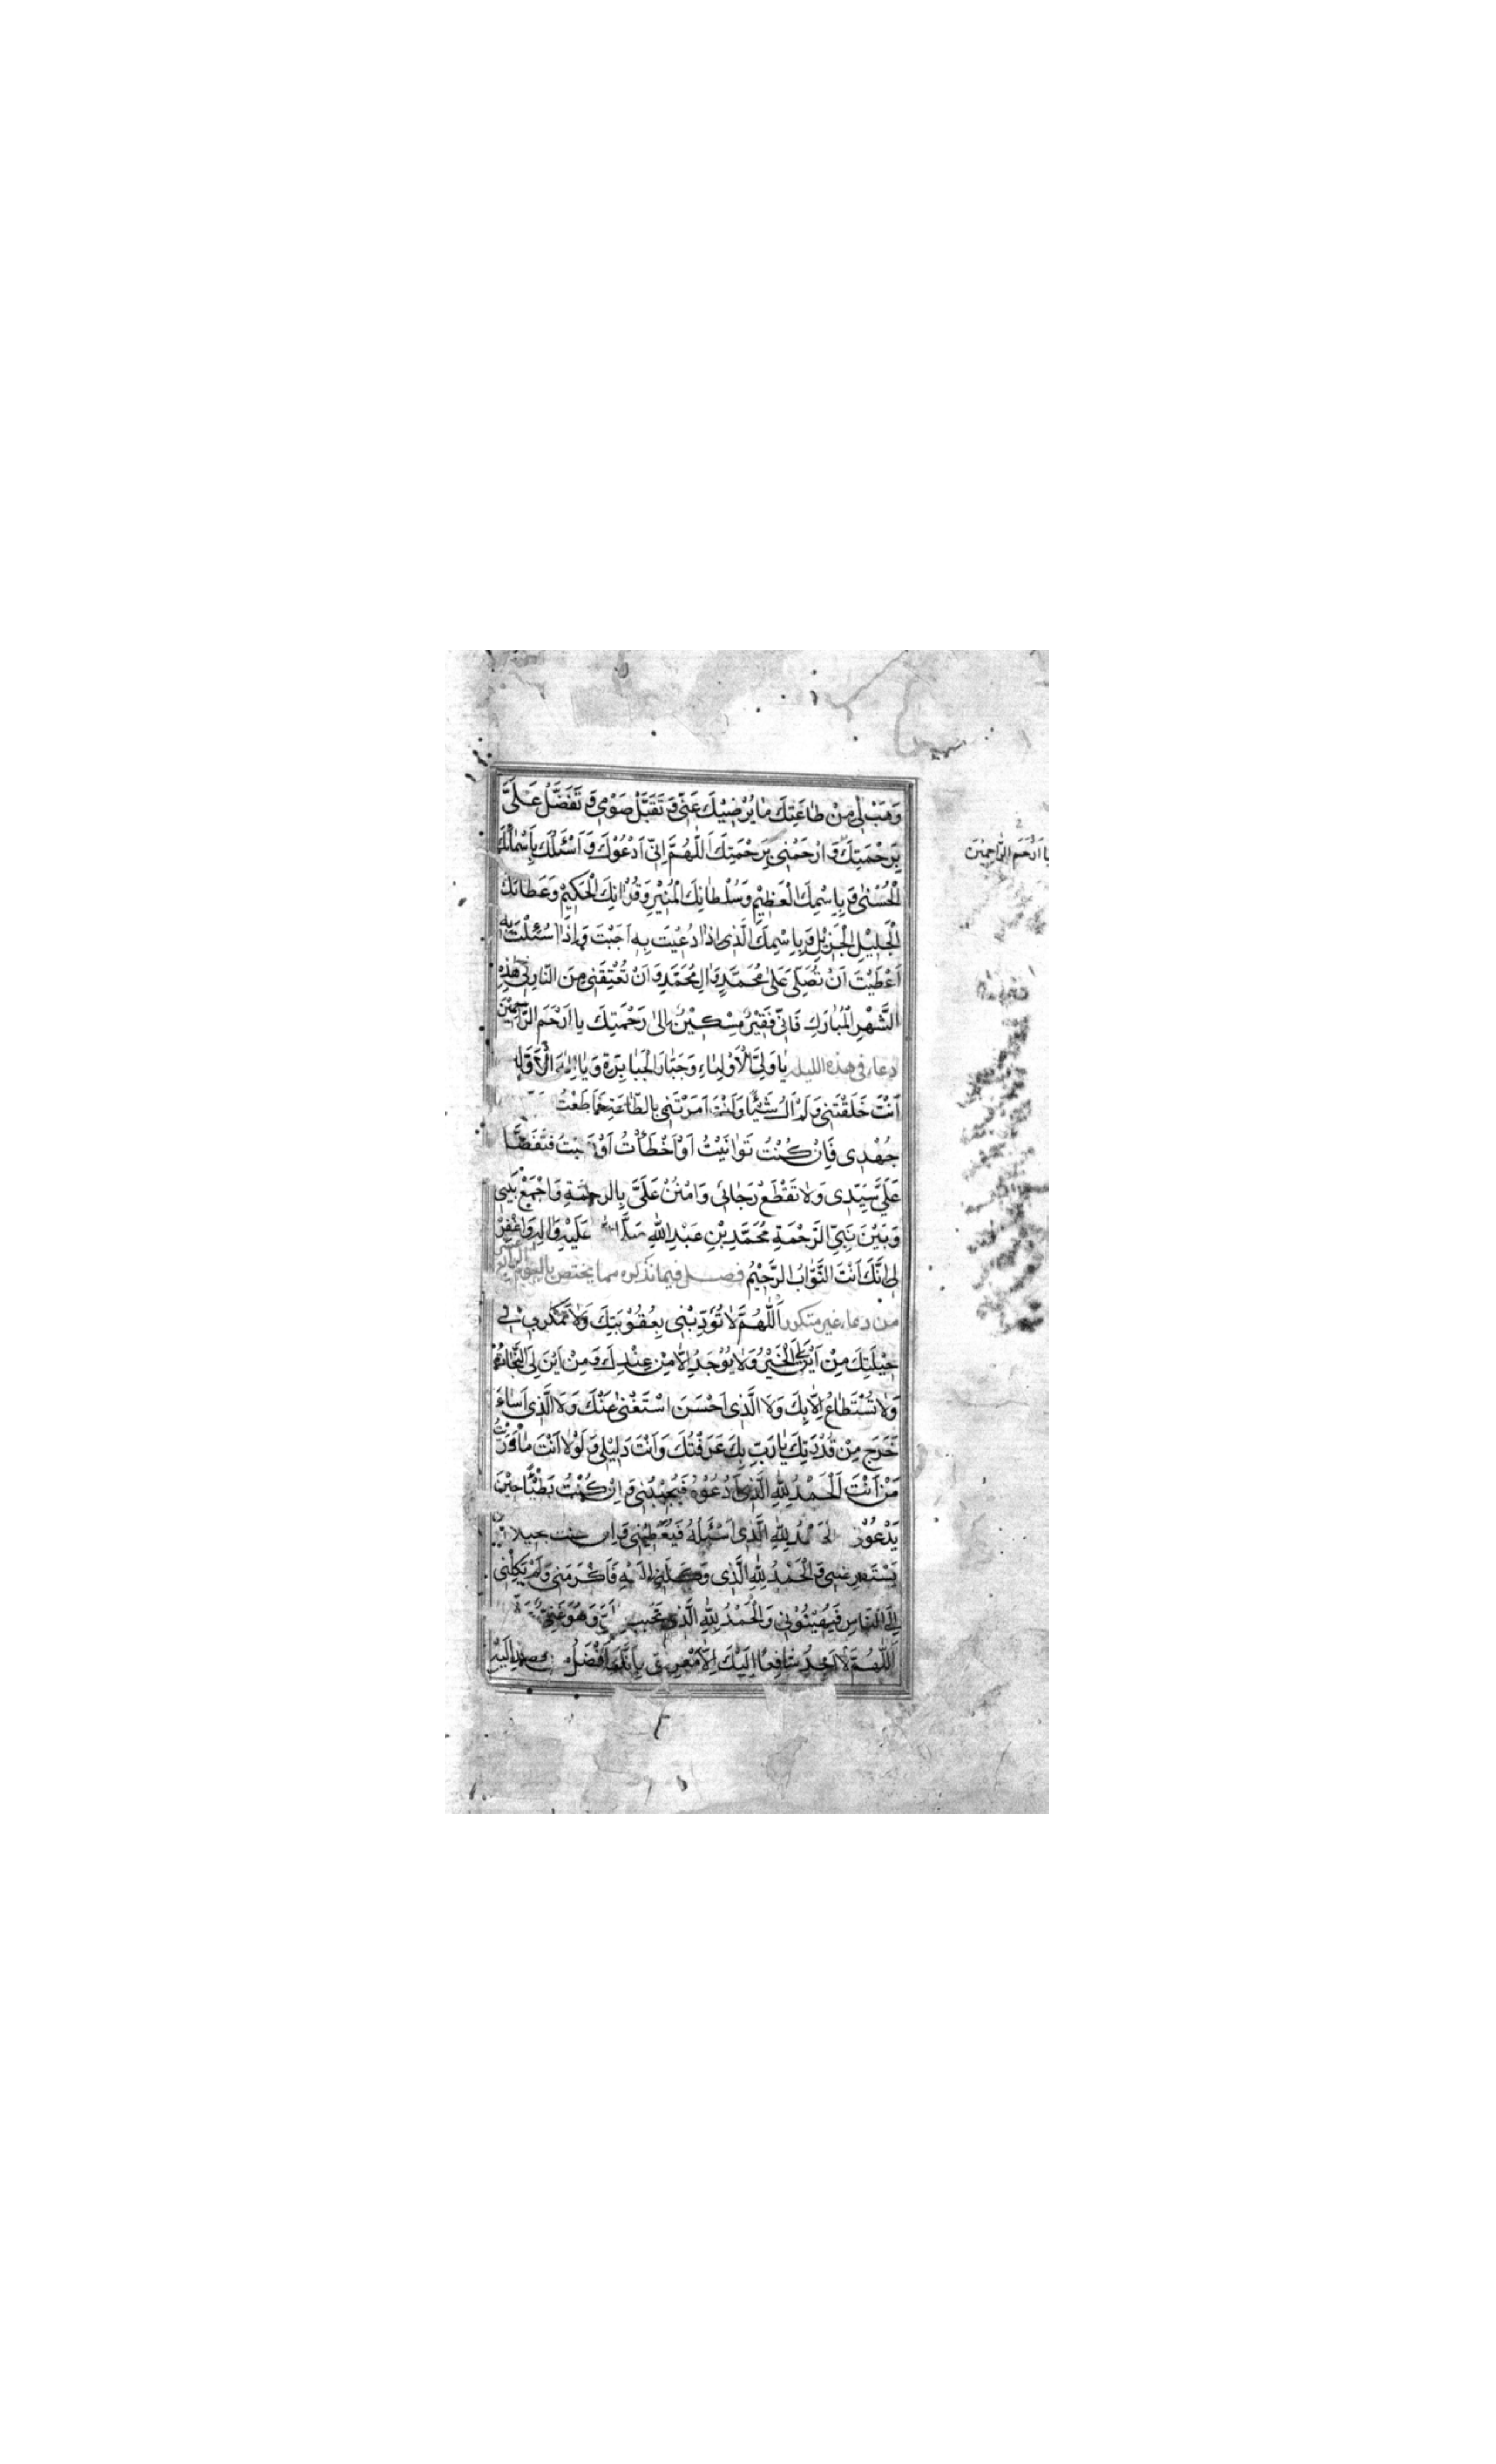 وَهَبْ لِي مِنْ طَاعَتِكَ مَا يُرْضِيْكَ عَنِّي وَ تَقَبَّلْ صَوْمِي وَ تَفَضَّلْ عَلَيَّ
بِرَحْمَتِكَ وَ ارْحَمْنِي بِرَحْمَتِكَ اَللّٰهُمَّ اِنِّي اَدْعُوْكَ وَ اَسْئَلُكَ بِاَسْمَائِكَ
الْحُسْنٰى وَ بِاِسْمِكَ الْعَظِيْمِ وَسُلْطَانِكَ الْمُنِيْرِ وَقُرْاٰنِكَ الْحَكِيْمِ وَعَطَائِكَ
الْجَلِيْلِ الْجَزِيْلِ وَ بِاِسْمِكَ الَّذِى اِذَا دُعِيْتَ بِهِ اَجَبْتَ وَ اِذَا سُئِلْتَ بِهِ
اَعْطَيْتَ اَنْ تُصَلِّيَ عَلٰى مُحَمَّدٍ وَ اٰلِ مُحَمَّدٍ وَ اَنْ تُعْتِقَنِي مِنَ النَّارِ فِي هٰذِهِ
الشَّهْرِ الْمُبَارَكِ فَاِنِّي فَقِيْرٌ مِسْكِيْنٌ اِلٰى رَحْمَتِكَ يَا اَرْحَمَ الرَّاحِمِيْنَ
دعاء فى هذه الليلة يَا وَلِيَّ الْاَوْلِيَاءِ وَ جَبَّارَ الْجَبَابِرَةِ وَ يَا اِلٰهَ الْاَوَّلِينَ
اَنْتَ خَلَقْتَنِي وَ لَمْ اَكُ شَيْئًا وَ اَنْتَ اَمَرْتَنِي بِالطَّاعَةِ فَاَطَعْتُ
جُهْدِى فَاِنْ كُنْتُ تَوَانَيْتُ اَوْ اَخْطَأْتُ اَوْ فَتَفَضَّلْ
عَلَيَّ سَيِّدِى وَ لَا تَقْطَعْ رَجَائِي وَ امْنُنْ عَلَيَّ بِالرَّحْمَةِ وَ اجْمَعْ بَيْنِي
وَ بَيْنَ نَبِيِّ الرَّحْمَةِ مُحَمَّدِ بْنِ عَبْدِ اللّٰهِ عَلَيْهِ وَ اٰلِهِ وَ اغْفِرْ
لِي اِنَّكَ اَنْتَ التَّوَّابُ الرَّحِيْمُ فصل فيما نذكره مما يختص باليوم الرابع عشر
من دعاء غير متكرر اَللّٰهُمَّ لَا تُؤَدِّبْنِي بِعُقُوْبَتِكَ وَ لَا تَمْكُرْ بِي فِي
حِيْلَتِكَ مِنْ اَيْنَ لِيَ الْخَيْرُ وَ لَا يُوْجَدُ اِلَّا مِنْ عِنْدِكَ وَ مِنْ اَيْنَ لِيَ النَّجَاةُ
وَ لَا تُسْتَطَاعُ اِلَّا بِكَ وَ لَا الَّذِى اَحْسَنَ اسْتَغْنٰى عَنْكَ وَ لَا الَّذِى اَسَاءَ
خَرَجَ مِنْ قُدْرَتِكَ يَا رَبِّ بِكَ عَرَفْتُكَ وَ اَنْتَ دَلِيْلِي وَ لَوْلَا اَنْتَ مَا دَرَيْتُ
مَنْ اَنْتَ اَلْحَمْدُ لِلّٰهِ الَّذِى اَدْعُوْهُ فَيُجِيْبُنِي وَ اِنْ كُنْتُ بَطِيْئًا حِيْنَ
يَدْعُوْنِي الْحَمْدُ لِلّٰهِ الَّذِى اَسْئَلُهُ فَيُعْطِيْنِي وَ اِنْ كنت بخيلا
وَ الْحَمْدُ لِلّٰهِ الَّذِى وَكَلَنِي اِلَيْهِ فَاَكْرَمَنِي وَ لَمْ يَكِلْنِي
اِلَى النَّاسِ فَيُهِيْنُوْنِي وَ الْحَمْدُ لِلّٰهِ الَّذِى تَحَبَّبَ وَ هُوَ غَنِيٌّ
اَللّٰهُمَّ لَا اَجِدُ شَافِعًا اِلَيْكَ اِلَّا مَعْرِفَتِي بِاَنَّكَ اَفْضَلُ
يا ارحم الراحمين